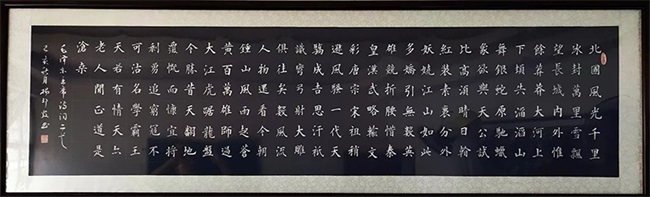 北國風光千里
冰封萬里雪飄
望長城內外惟
餘莽莽大河上
下頓失滔滔山
舞銀蛇原馳蠟
象欲與天公試
比高須晴日看
紅裝素裹分外
妖嬈江山如此
多嬌引無數英
雄競折腰惜秦
皇漢武略輸文
彩唐宗宋祖稍
遜風騷一代天
驕成吉思汗祇
識彎弓射大雕
俱往矣數風流
人物還看今朝
鍾山風雨起蒼
黃百萬雄師過
大江虎踞龍盤
今勝昔天翻地
覆慨而慷宜將
剩勇追窮寇不
可沽名學霸王
天若有情天亦
老人間正道是
滄桑
毛澤東主席詩詞二首
己亥秋月